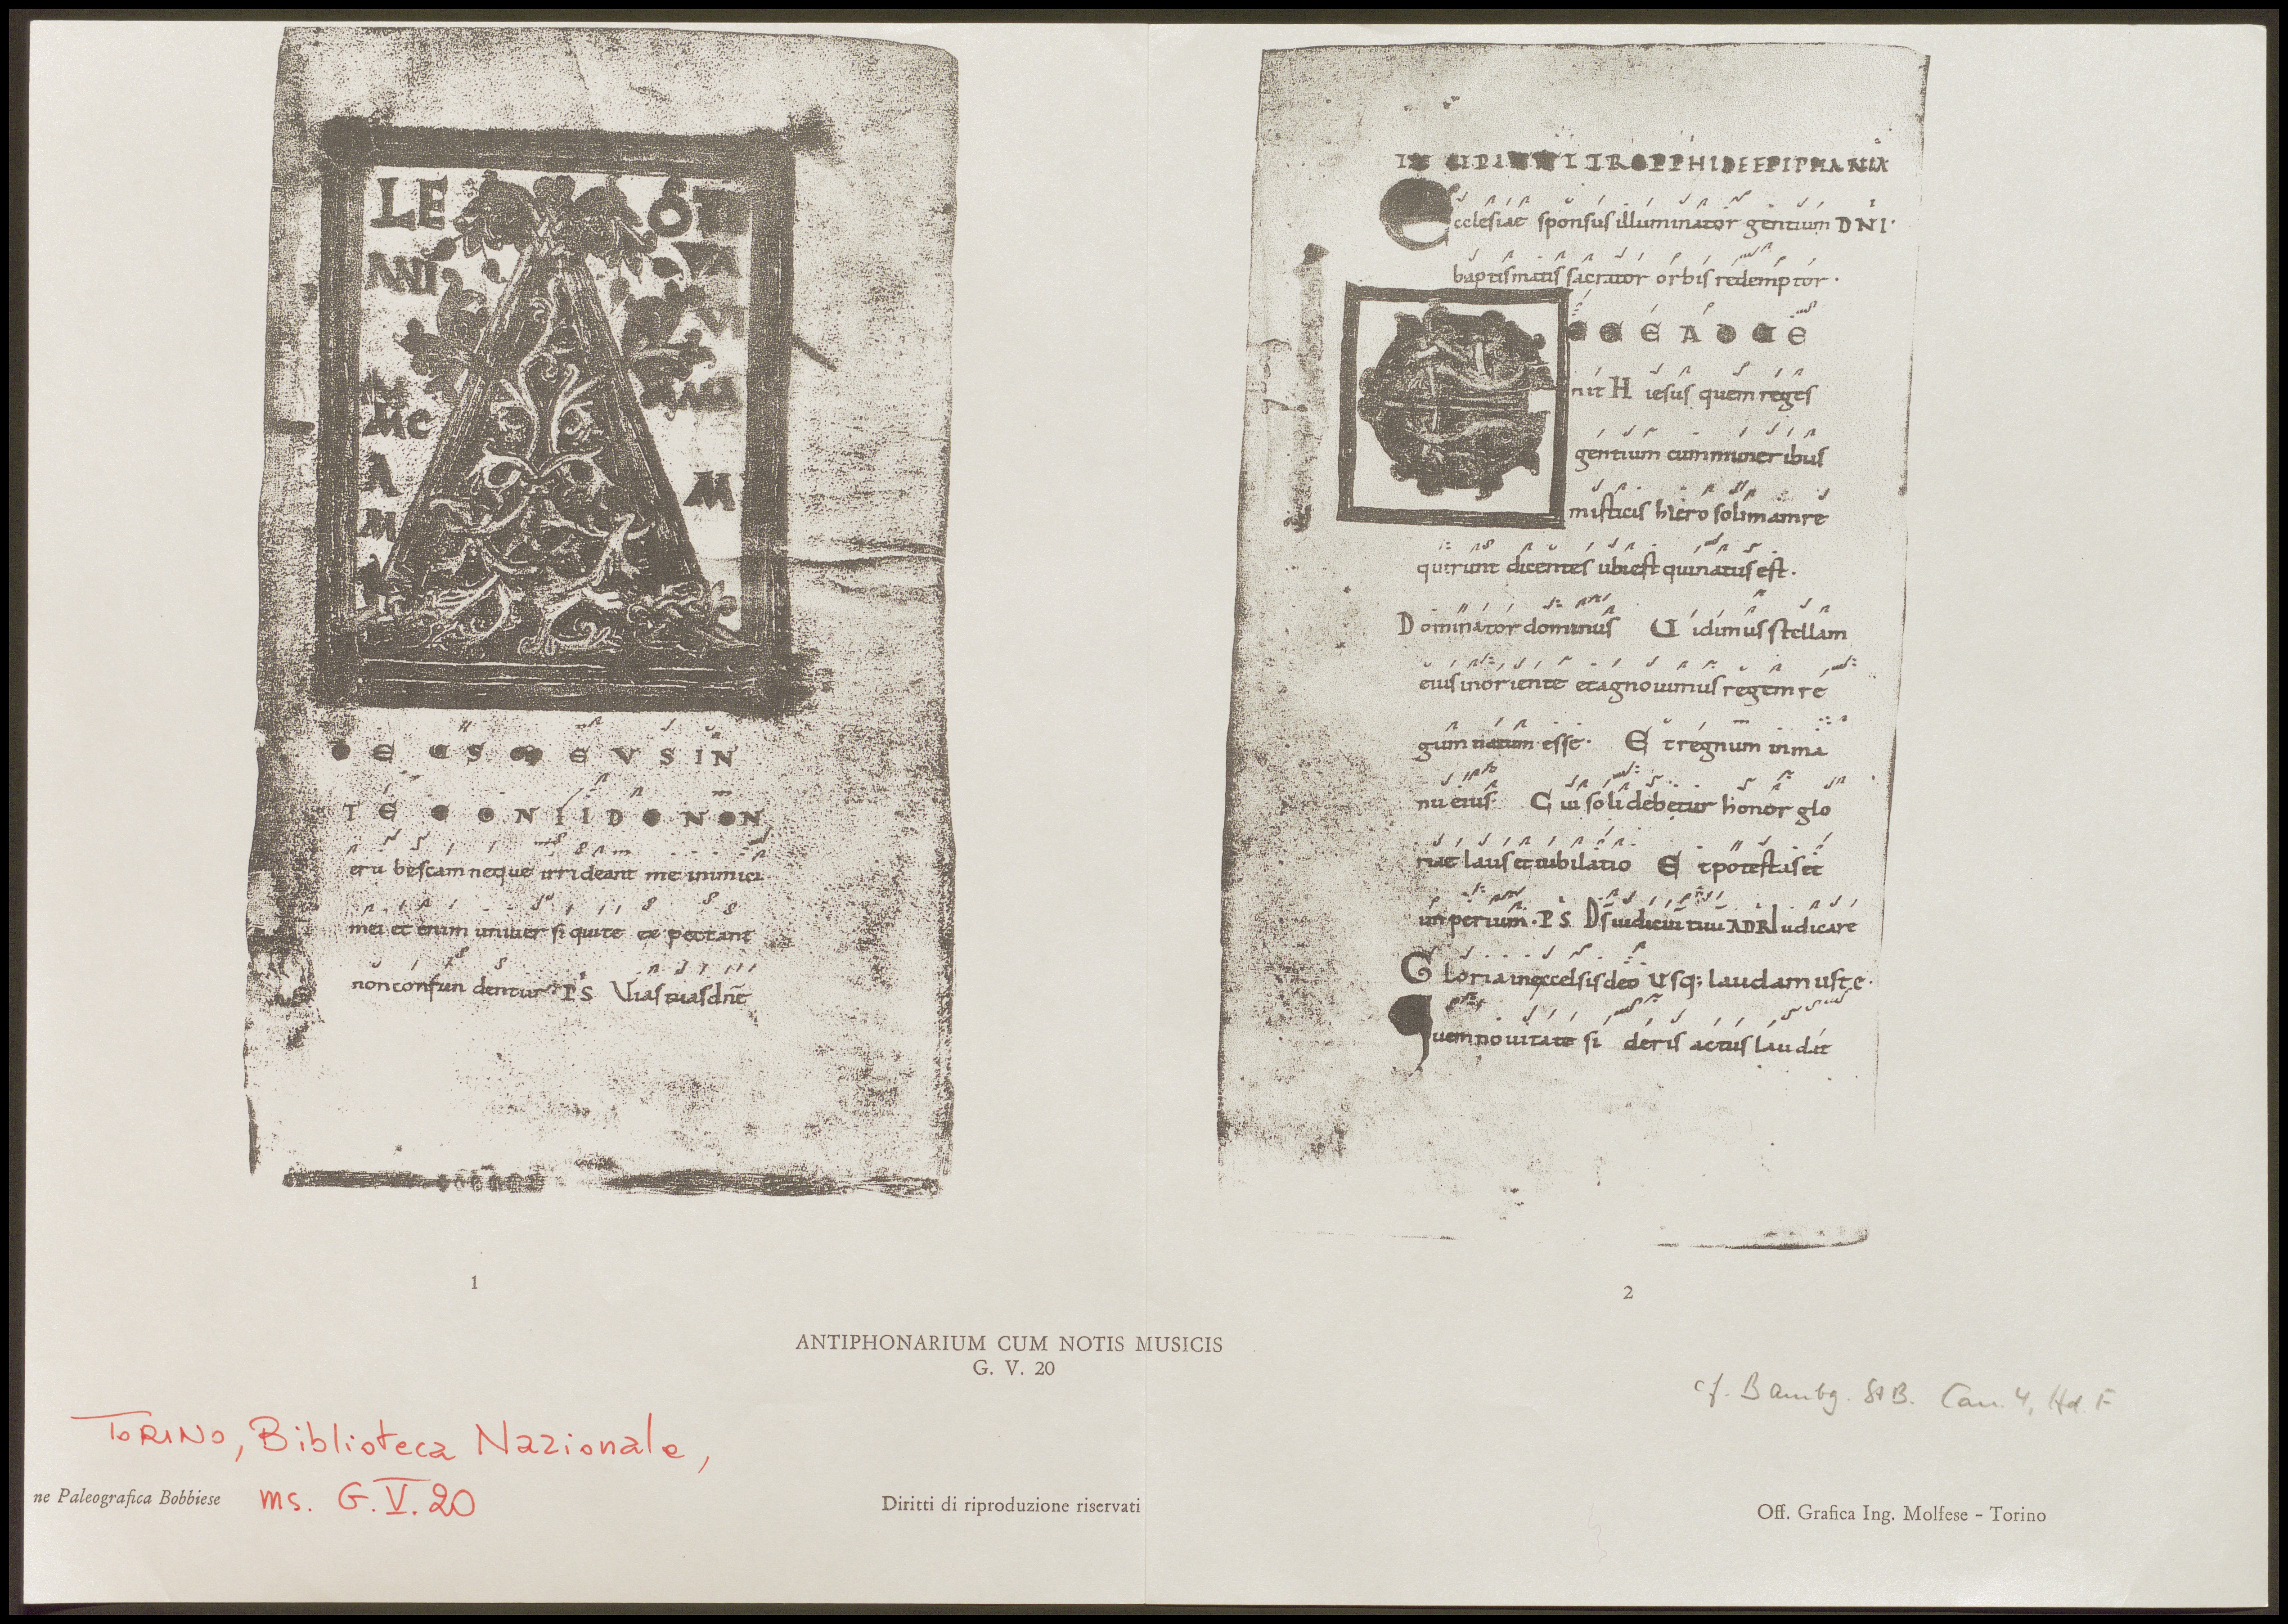 LE
ANI
VA
VI
MAM
ME
A
M
M
D E US M E V S IN
T E C O N F I D O NON
eru bescam neque irrideant me inimici
mei et enim univer si qui te ex pectant
non confun dentur PS Vias tuas dne
1
INCIPIUNT TROPPHI DE EPIPHANIA
Ecclesiae sponsus illuminator gentium DNI·
baptismatis sacrator orbis redemptor·
E C C E A D U E
nit H iesus quem reges
gentium cum muneribus
misticis hiero solimam re
quirunt dicentes ubi est qui natus est·
Dominator dominus Vidimus stellam
eius in oriente et agnovimus regem re
gum natum esse· Et regnum in ma
nu eius· Cui soli debetur honor glo
riae laus et iubilatio Et potestas et
imperium· PS Ds iudiciu tuu ADR Iudicare
Gloria in excelsis deo Usq; laudamus te·
Quem novitate si deris actus laudat
2
ANTIPHONARIUM CUM NOTIS MUSICIS
G. V. 20
cf. Bambg. StB. Can. 4, Hd. F
TORINO, Biblioteca Nazionale,
ms. G.V.20
ne Paleografica Bobbiese
Diritti di riproduzione riservati
Off. Grafica Ing. Molfese - Torino